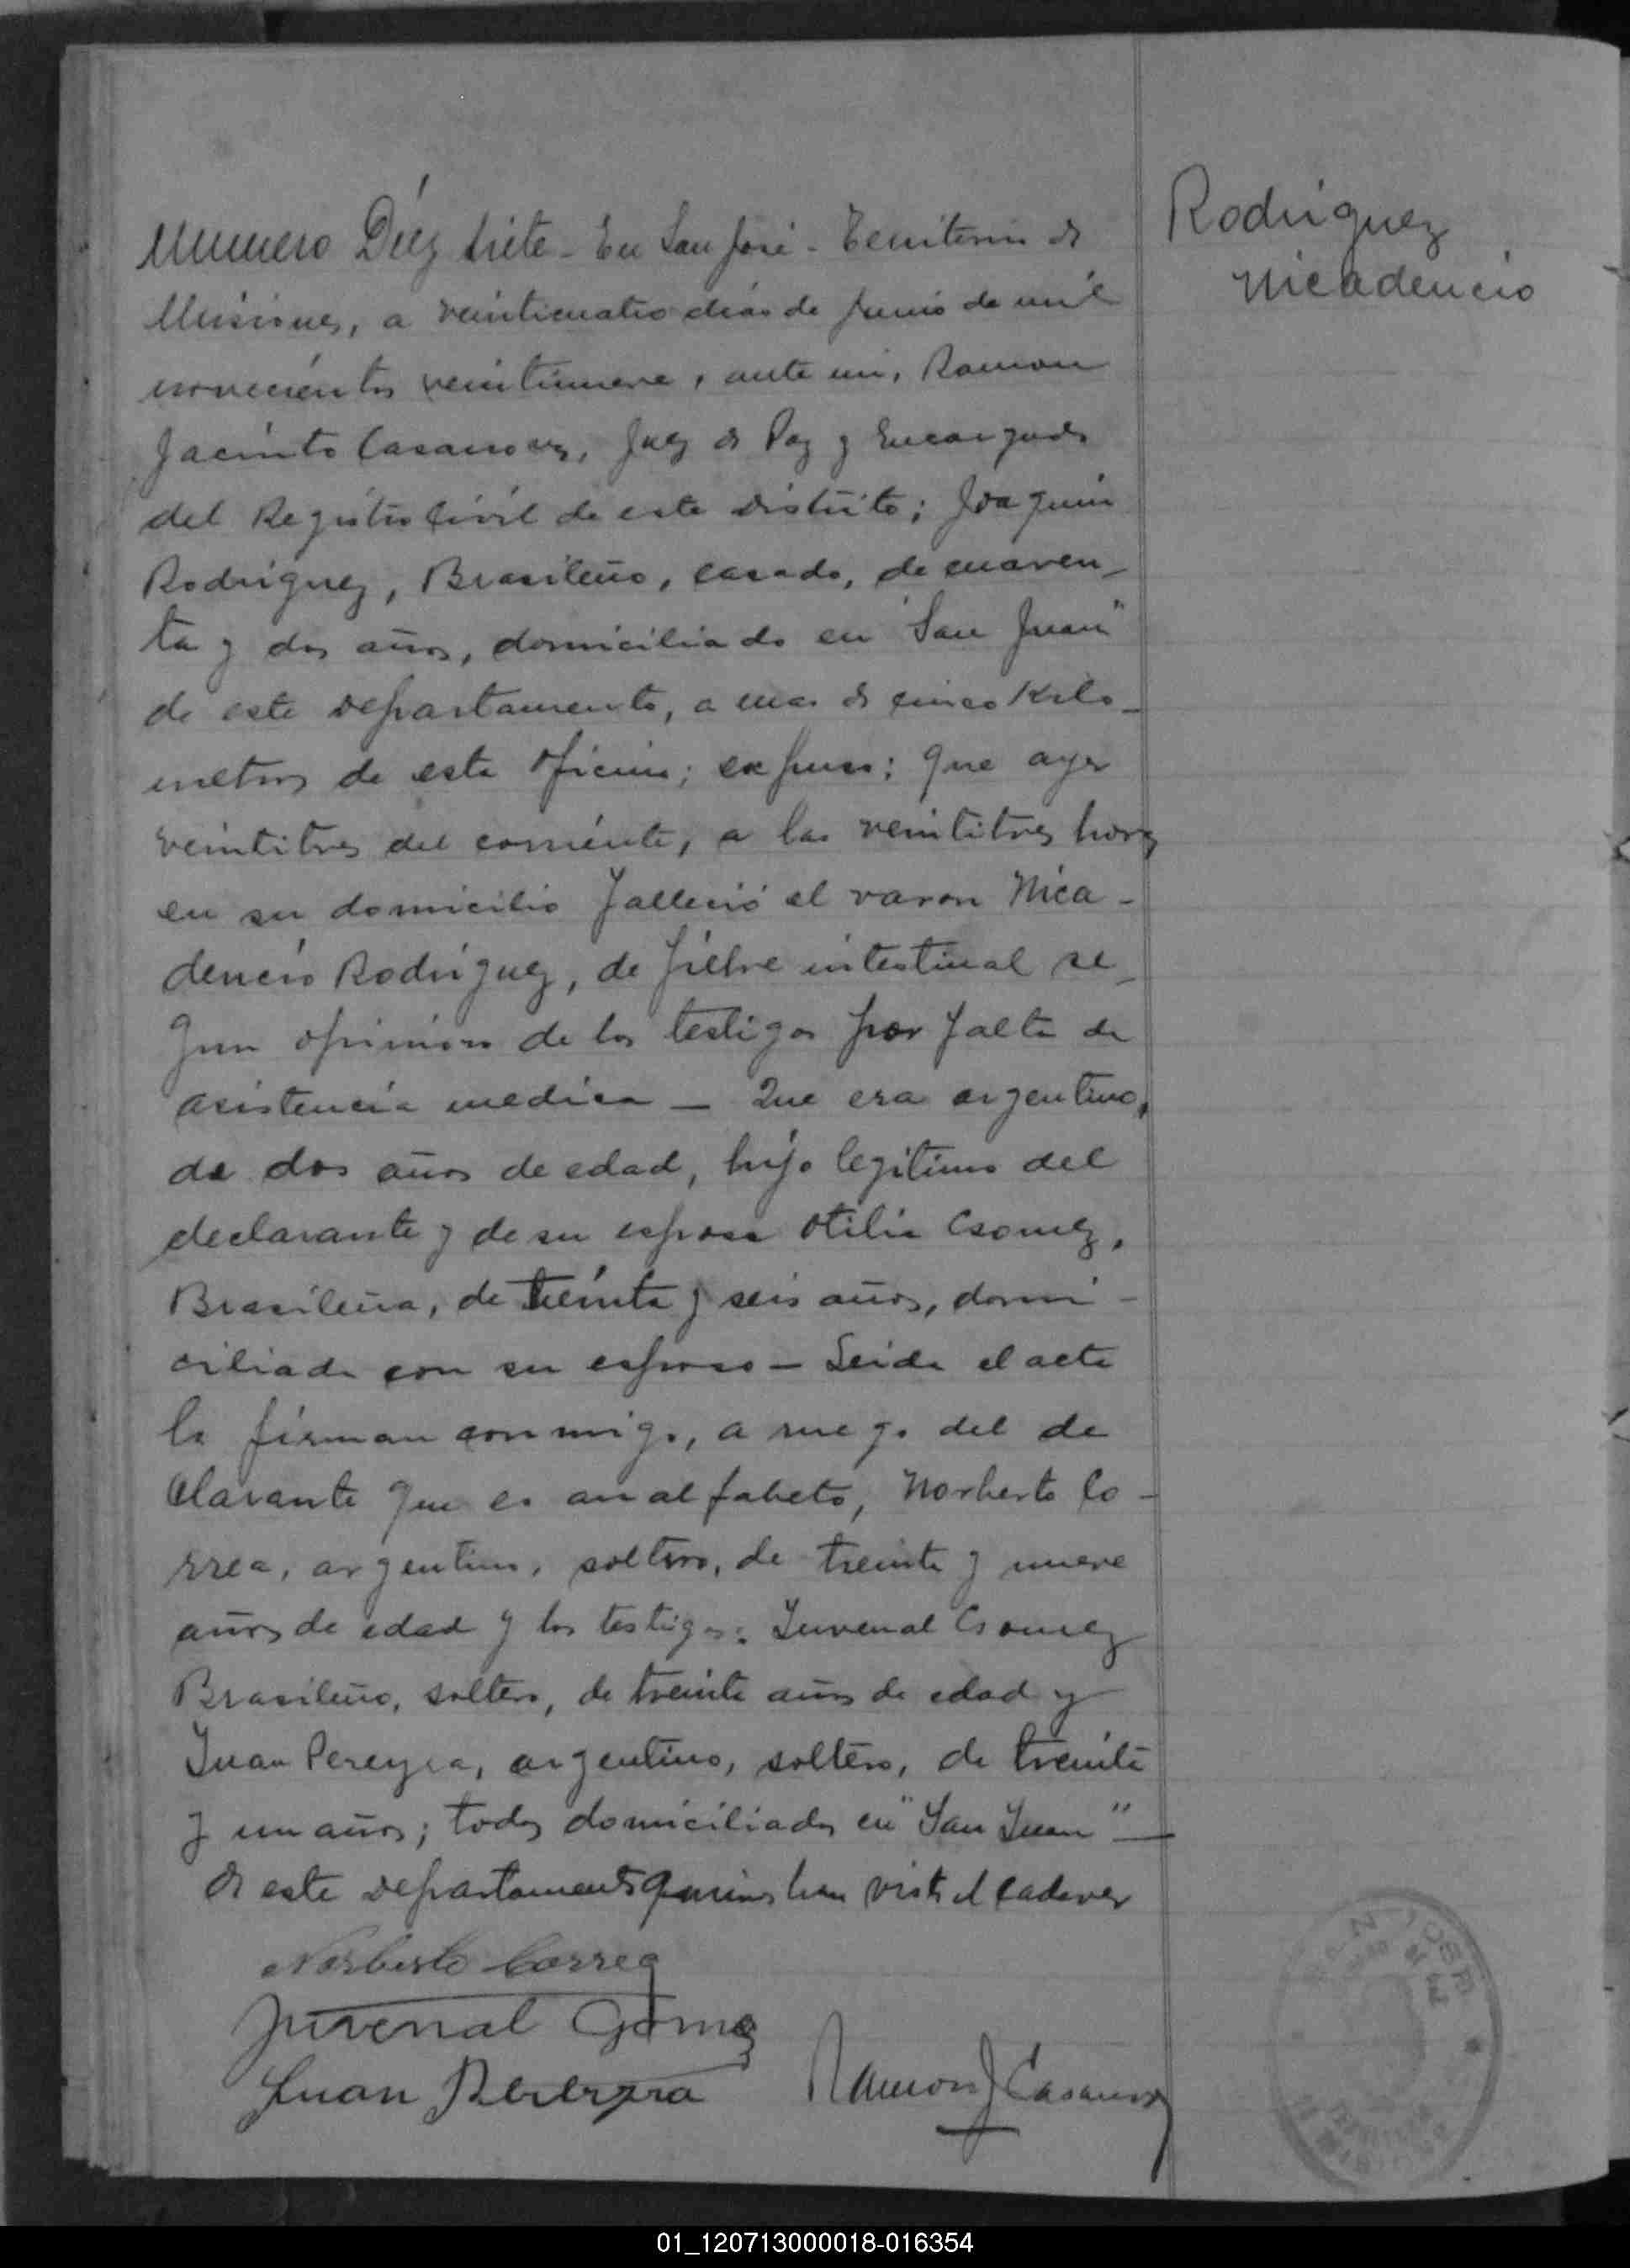 Rodriguez
Nicadencio
Numero Diez siete - En San José - Territorio de
Misiones, a veinticuatro dias de Junio de mil
novecientos veintinueve, ante mi, Ramon
Jacinto Casanova, Juez de Paz y Encargado
del Registro Civil de este distrito; Joaquin
Rodriguez, Brasileño, casado, de cuaren-
ta y dos años, domiciliado en "San Juan"
de este departamento, a mas de cinco Kilo-
metros de esta oficina; expuso: que ayer
veintitres del corriente, a las veintitres horas
en su domicilio falleció el varon Nica-
dencio Rodriguez, de fiebre intestinal se-
gun opinion de los testigos por falta de
asistencia medica - Que era argentino,
de dos años de edad, hijo legitimo del
declarante y de su esposa Otilia Gomez,
Brasileña, de treinta y seis años, domi-
ciliada con su esposo - Leida el acta
la firman conmigo, a ruego del de
clarante que es analfabeto, Norberto Co-
rrea, argentino, soltero, de treinta y nueve
años de edad y los testigos: Juvenal Gomez
Brasileño, soltero, de treinta años de edad y
Juan Pereyra, argentino, soltero, de treinta
y un años; todos domiciliados en "San Juan" -
de este departamento quienes han visto el cadaver
Norberto Correa
Juvenal Gomez
Juan Pereyra Ramon J Casanova
SAN JOSE
01_120713000018-016354